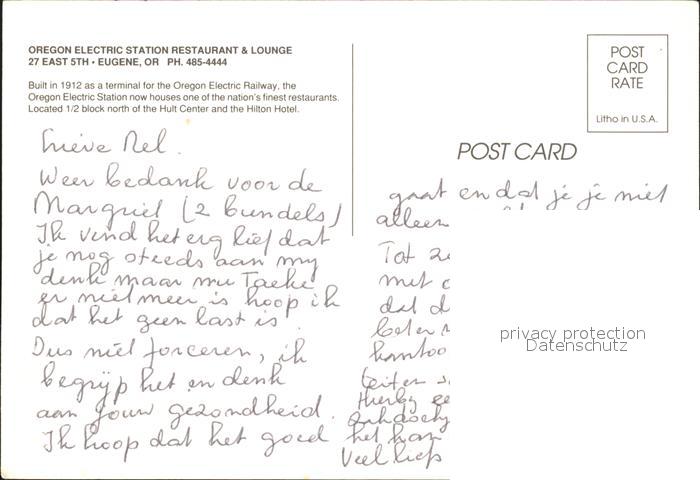 OREGON ELECTRIC STATION RESTAURANT & LOUNGE
27 EAST 5TH • EUGENE, OR PH. 485-4444
Built in 1912 as a terminal for the Oregon Electric Railway, the
Oregon Electric Station now houses one of the nation's finest restaurants.
Located 1/2 block north of the Hult Center and the Hilton Hotel.
Lieve Nel.
Weer bedankt voor de
Margriet (2 bundels)
Ik vind het erg lief dat
je nog steeds aan my
denkt maar nu Taeke
er niet meer is hoop ik
dat het geen last is
Dus niet forceren, ik
begryp het en denk
aan jouw gezondheid.
Ik hoop dat het goed
POST
CARD
RATE
Litho in U.S.A.
POST CARD
gaat en dat je je niet
alleen
Tot
met
dat
beter
kantoo
Hierby
het kan
Veel liefs
privacy protection
Datenschutz